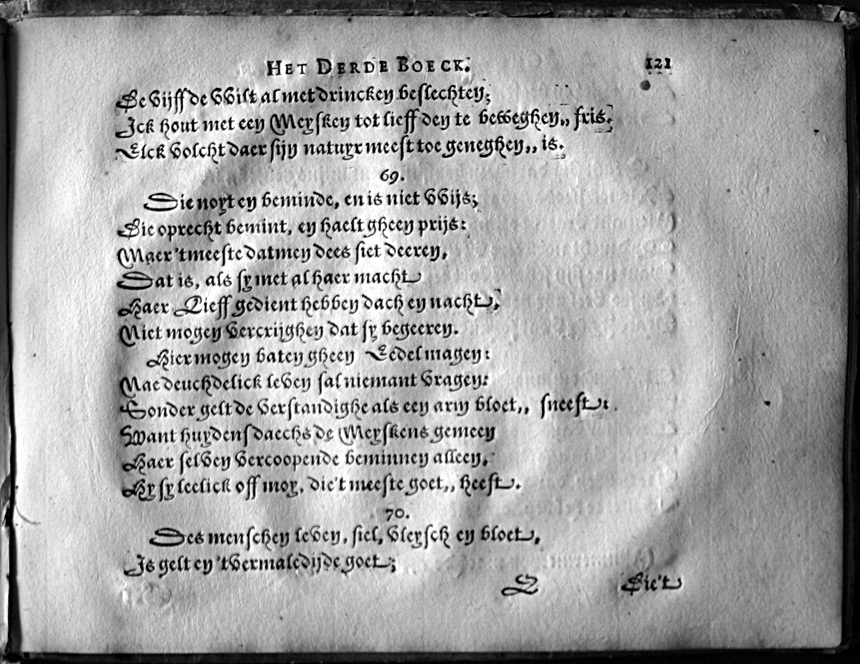 HET DERDE BOECK. 121
De vijff de Wilt al met drincken beslechten;
Ick hout met een Meysken tot lieff den te beweghen,, fris.
Elck volcht daer sijn natuyr meest toe geneghen,, is.
69.
Die noyt en beminde, en is niet Wijs;
Die oprecht bemint, en haelt gheen prijs:
Maer 'tmeeste datmen dees siet deeren,
Dat is, als sy met al haer macht
Haer Lieff gedient hebben dach en nacht,
Niet mogen vercrijghen dat sy begeeren.
Hier mogen baten gheen Eedel magen:
Nae deuchdelick leven sal niemant vragen:
Sonder gelt de verstandighe als een arm bloet,, sneeft:
Want huydensdaechs de Meyskens gemeen
Haer selven vercoopende beminnen alleen,
Hy sy leelick off moy, die't meeste goet,, heeft.
70.
Des menschen leven, siel, vleysch en bloet,
Is gelt en 'tvermaledijde goet;
Q Die't